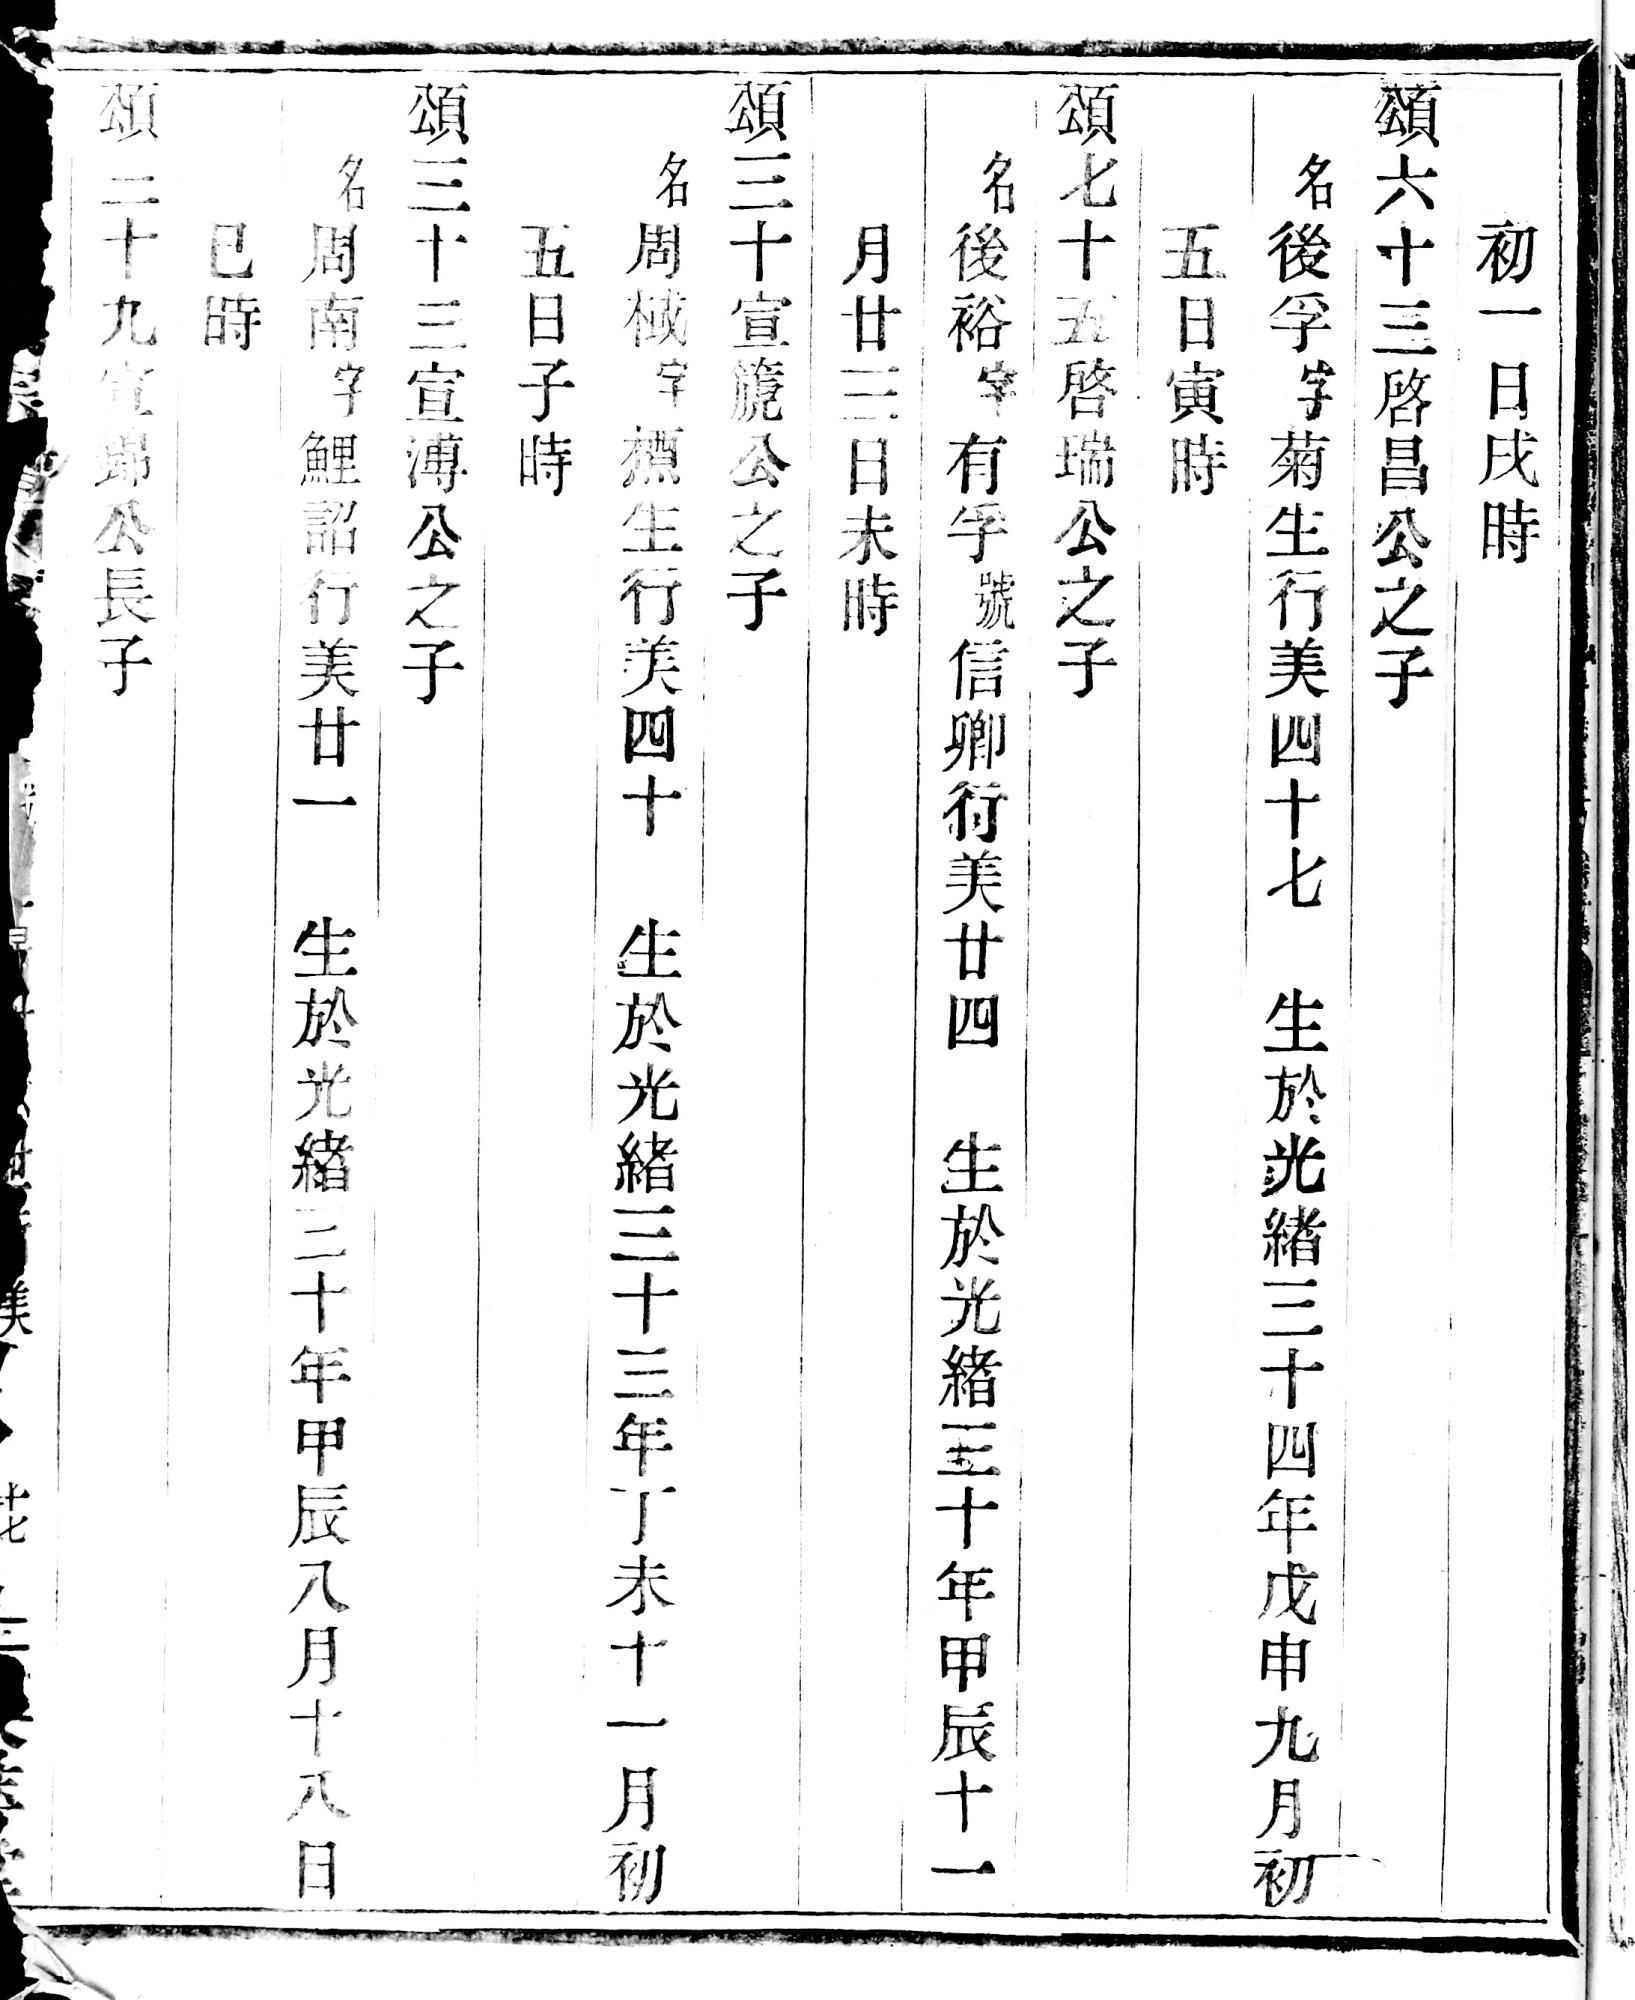 初一日戌時
頌六十三啓昌公之子
名後孚字菊生行美四十七　生於光緒三十四年戊申九月初
五日寅時
頌七十五啓瑞公之子
名後裕字有孚號信卿行美廿四　生於光緒三十年甲辰十一
月廿三日未時
頌三十宣箎公之子
名周棫字櫄生行美四十　生於光緒三十三年丁未十一月初
五日子時
頌三十三宣溥公之子
名周南字鯉詔行美廿一　生於光緒三十年甲辰八月十八日
巳時
頌二十九宣歸公長子